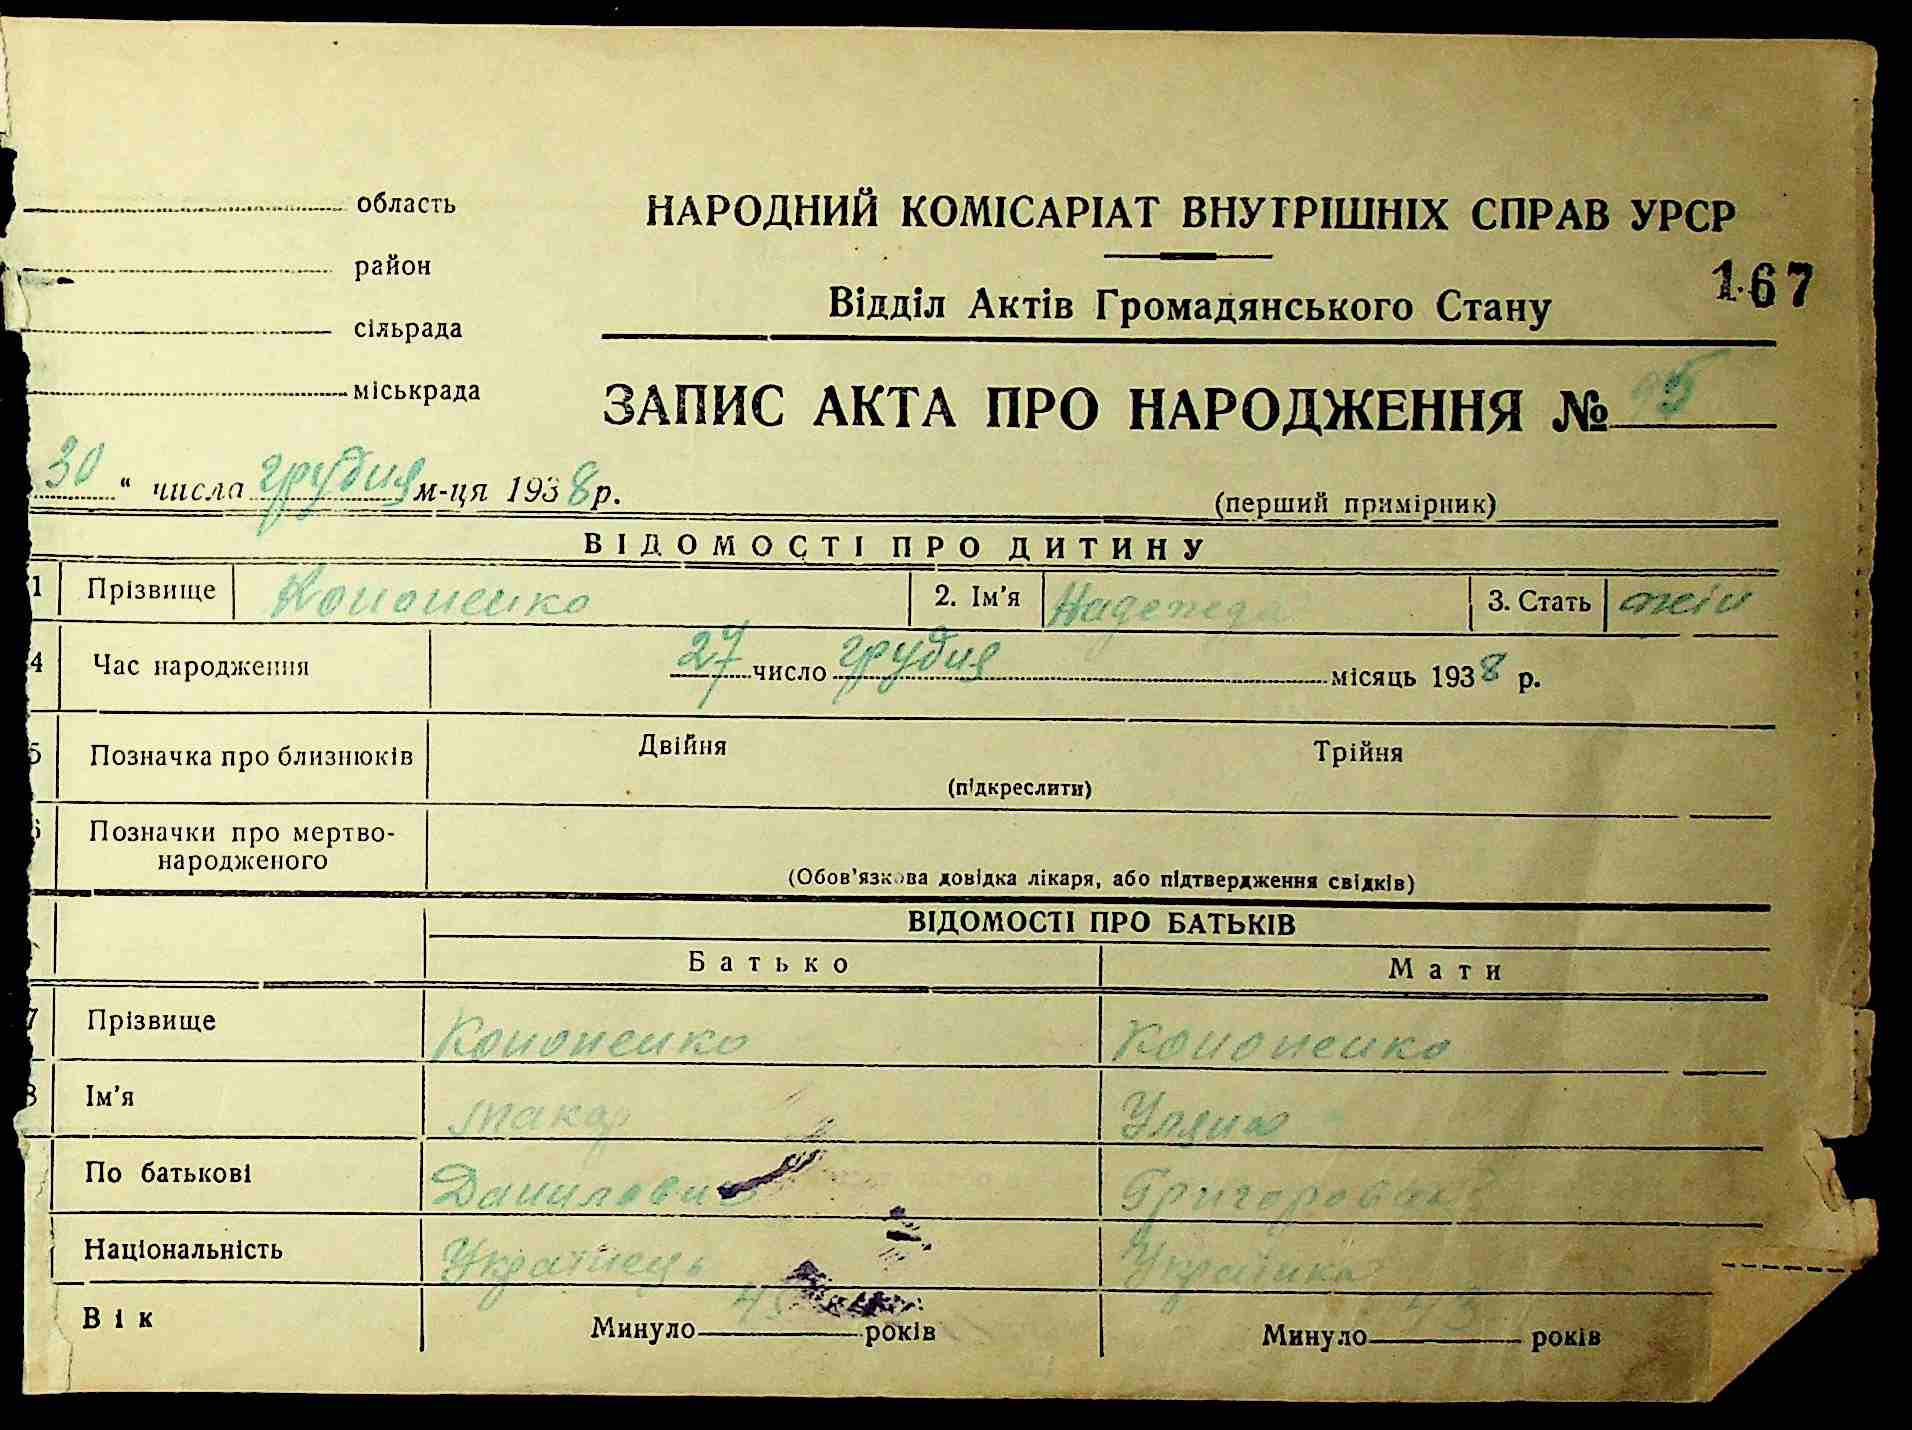 область
НАРОДНИЙ КОМІСАРІАТ ВНУТРІШНІХ СПРАВ УРСР
район
167
Відділ Актів Громадянського Стану
сільрада
міськрада
ЗАПИС АКТА ПРО НАРОДЖЕННЯ № 95
30 " числа грудня м-ця 1938 р.
(перший примірник)
ВІДОМОСТІ ПРО ДИТИНУ
1 Прізвище Кононенко 2. Ім'я Надежда 3. Стать жін
4 Час народження 27 число грудня місяць 1938 р.
5 Позначка про близнюків Двійня Трійня
(підкреслити)
Позначки про мертво-
народженого
(Обов'язкова довідка лікаря, або підтвердження свідків)
ВІДОМОСТІ ПРО БАТЬКІВ
Батько Мати
7 Прізвище Кононенко Кононенко
8 Ім'я Макар Уляна
По батькові Данилович Григоровна
Національність Украінець Украінка
Вік Минуло років Минуло 43 років